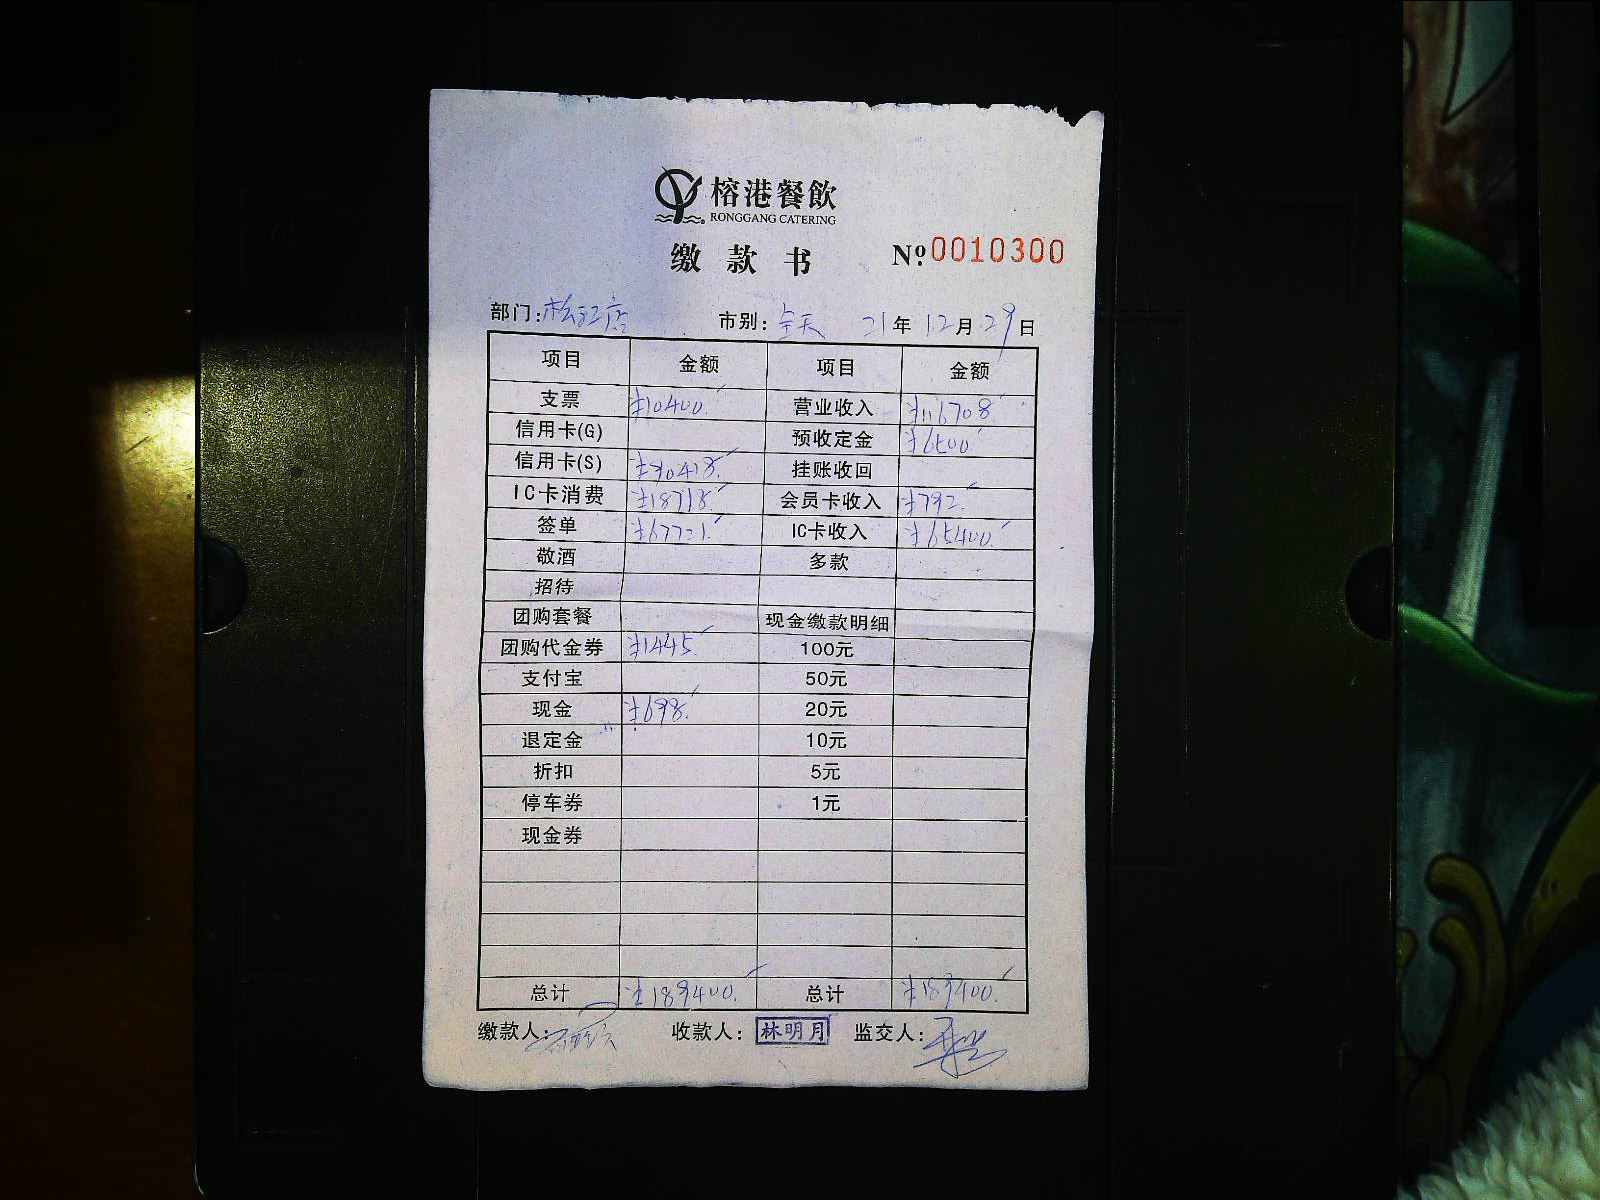 榕港餐飲
RONGGANG CATERING
缴款书 Nº:0010300
部门:松江店 市别:全天 21年12月29日
项目 金额 项目 金额
支票 ¥10400. 营业收入 ¥116708
信用卡(G) 预收定金 ¥6500
信用卡(S) ¥90418. 挂账收回
IC卡消费 ¥18718. 会员卡收入 ¥792.
签单 ¥67721. IC卡收入 ¥65400.
敬酒 多款
招待
团购套餐 现金缴款明细
团购代金券 ¥1445. 100元
支付宝 50元
现金 ¥698. 20元
退定金 10元
折扣 5元
停车券 1元
现金券
总计 ¥189400. 总计 ¥189400.
缴款人: 收款人:林明月 监交人: